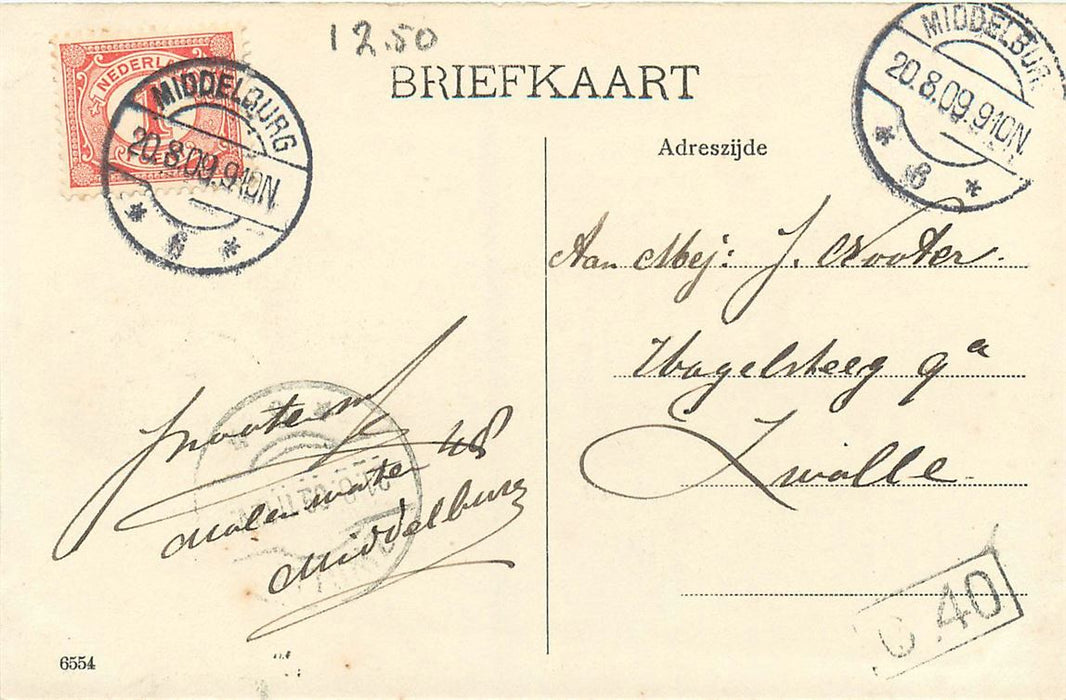 12.50
BRIEFKAART
NEDERLAND
1
MIDDELBURG
20.8.09.9-10N
* 6 *
MIDDELBUR
20.8.09.9-10N.
* 6 *
Adreszijde
Aan Mej: J. Nooter.
9a
Zwolle.
48
Molenwater
Middelburg
40
6554